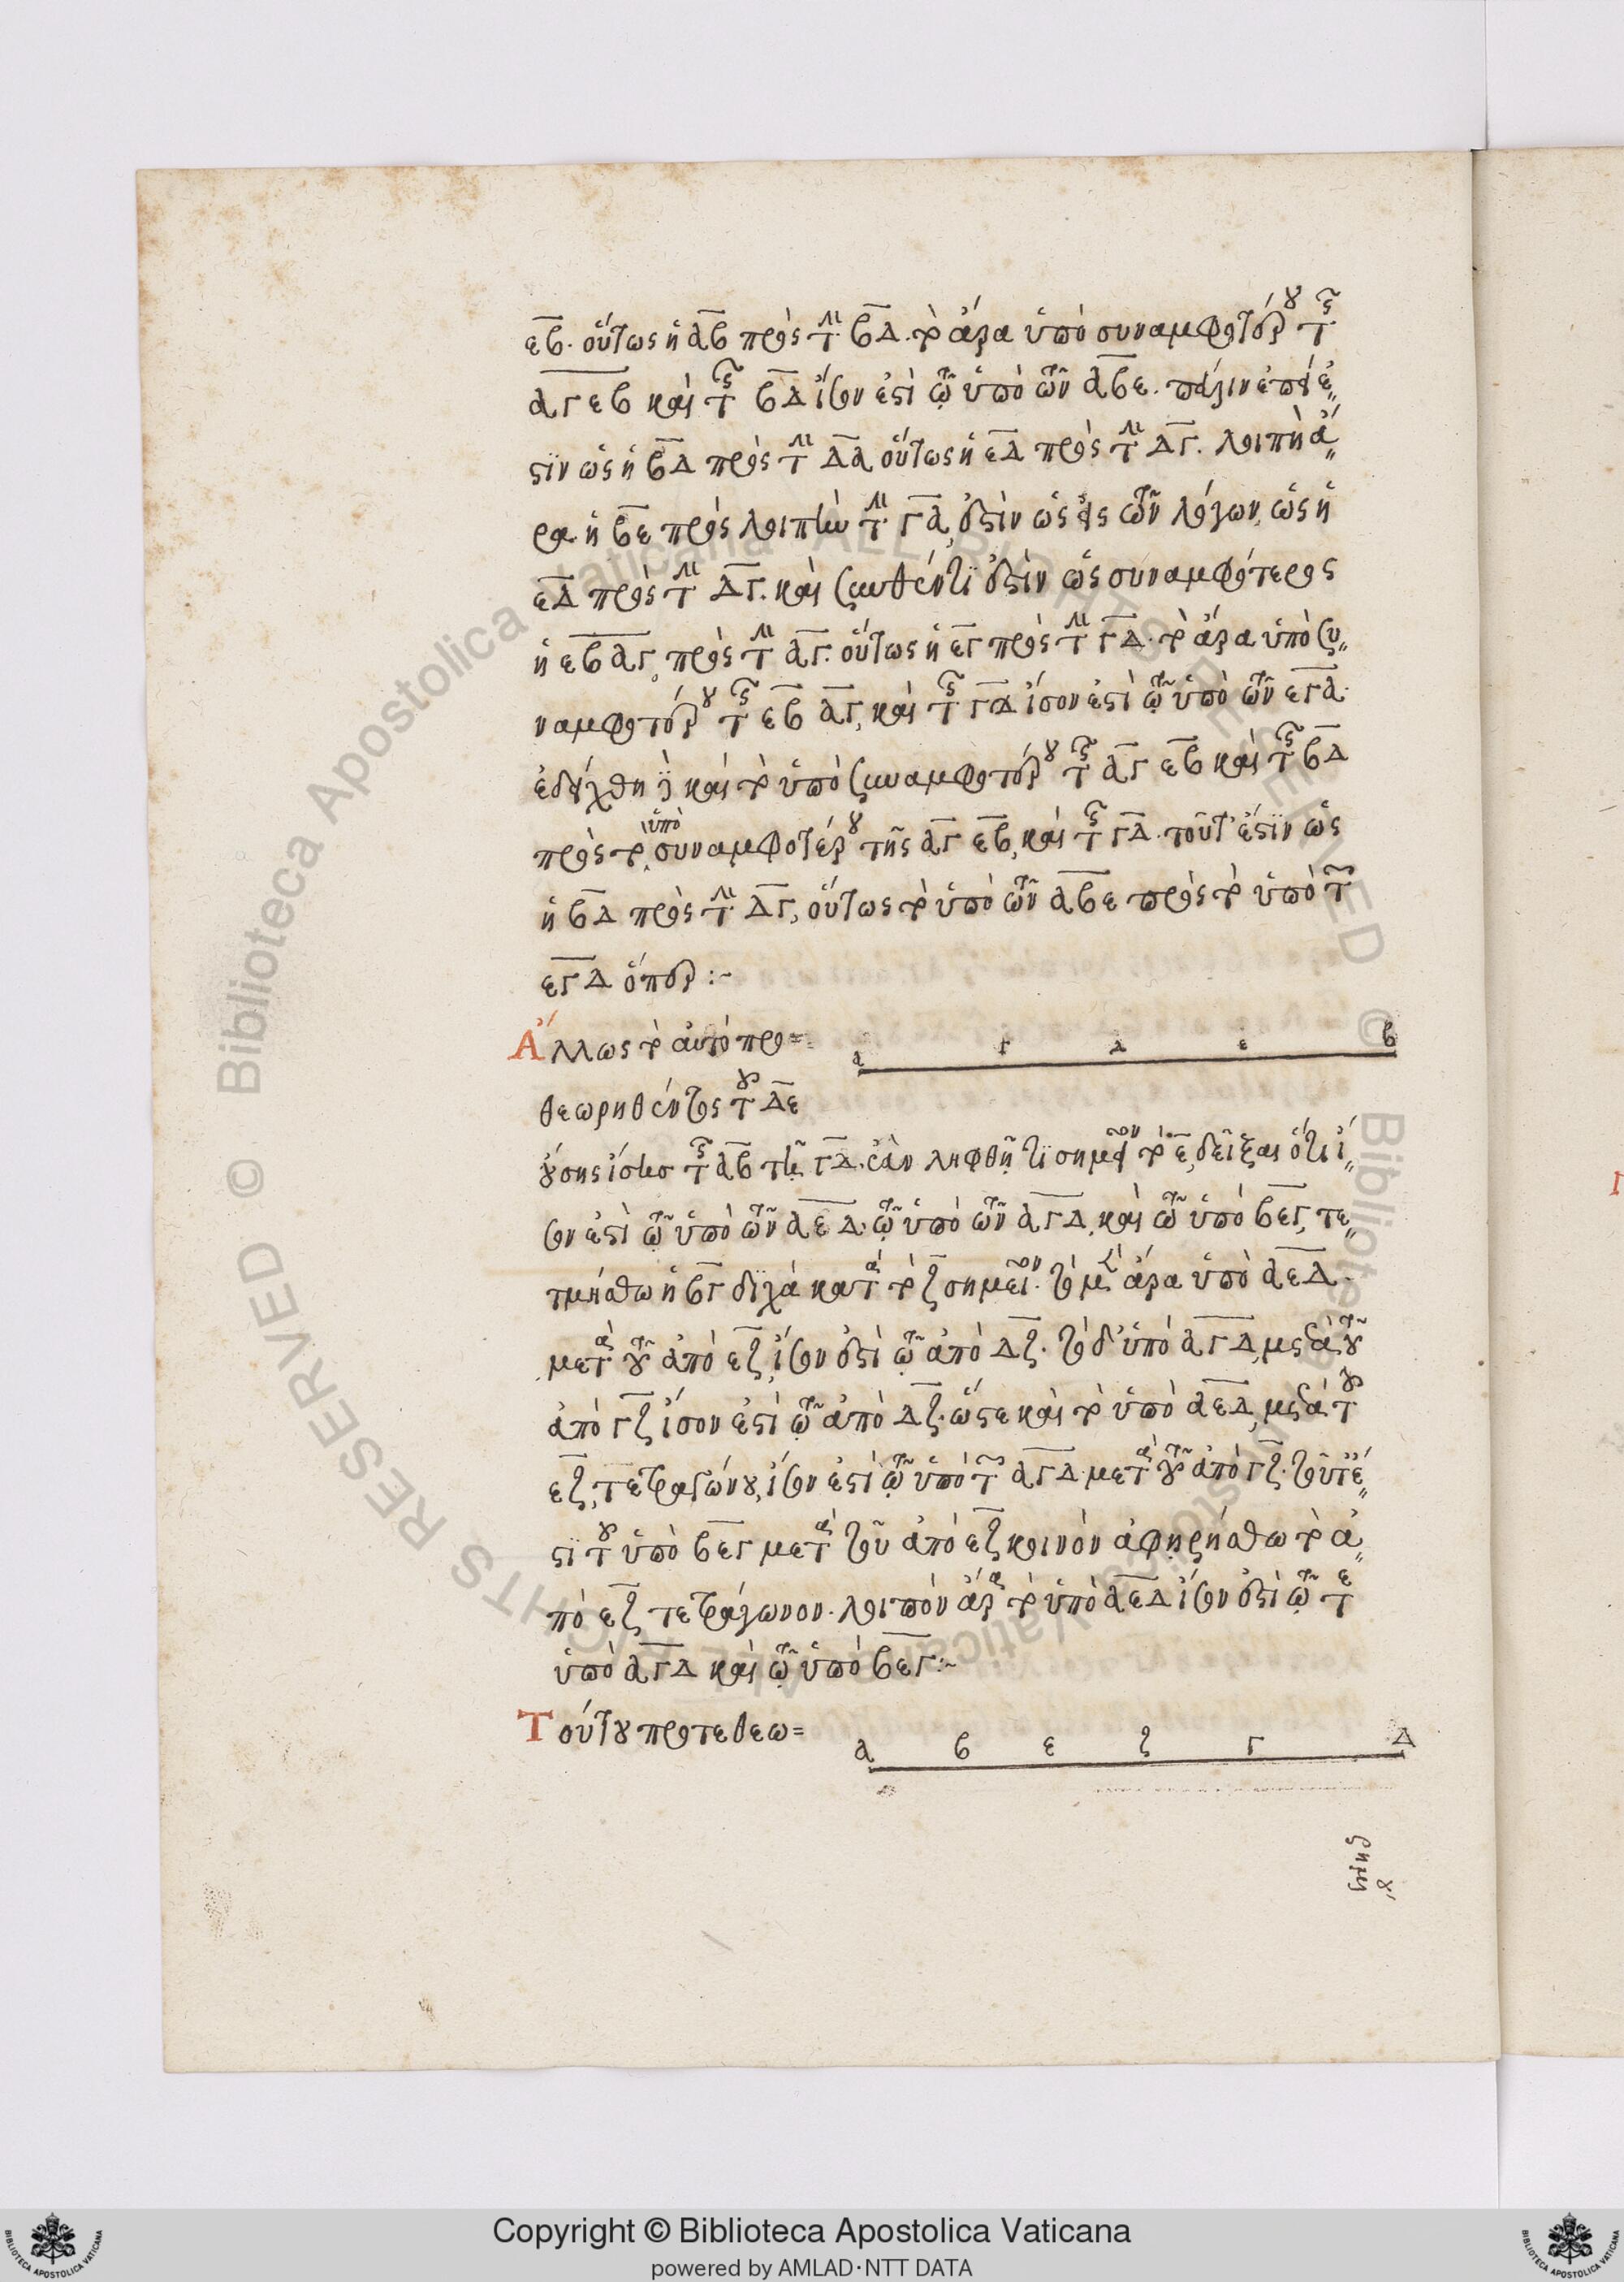 εβ. οὕτως ἡ αβ πρὸς τὴν βδ. τὸ ἄρα ὑπὸ συναμφοτέρου τῆς
αγ εβ καὶ τῆς βδ ἴσον ἐστὶ τῷ ὑπὸ τῶν αβε. πάλιν ἐπεί ἐ
στιν ὡς ἡ βδ πρὸς τὴν δα οὕτως ἡ εδ πρὸς τὴν δγ. λοιπὴ ἄ
ρα ἡ βε πρὸς λοιπὴν τὴν γα, ἐστὶν ὡς εἷς τῶν λόγων, ὡς ἡ
εδ πρὸς τὴν δγ. καὶ συνθέντι ἐστὶν ὡς συναμφότερος
ἡ εβ αγ πρὸς τὴν αγ. οὕτως ἡ εγ πρὸς τὴν γδ. τὸ ἄρα ὑπὸ συ
ναμφοτέρου τῆς εβ αγ, καὶ τῆς γδ ἴσον ἐστὶ τῷ ὑπὸ τῶν εγα.
ἐδείχθη δὲ καὶ τὸ ὑπὸ συναμφοτέρου τῆς αγ εβ καὶ τῆς βδ
πρὸς τὸ ὑπὸ συναμφοτέρου τῆς αγ εβ, καὶ τῆς γδ. τοῦτ' ἔστιν ὡς
ἡ βδ πρὸς τὴν δγ, οὕτως τὸ ὑπὸ τῶν αβε πρὸς τὸ ὑπὸ τῶν
εγδ ὅπερ :~
Ἄλλως τὸ αὐτὸ προ=
α γ δ ε β
θεωρηθέντος τοῦ δε
οὔσης ἴσης τῆς αβ τῇ γδ. ἐὰν ληφθῇ τι σημεῖον τὸ ε, δεῖξαι ὅτι ἴ
σον ἐστὶ τῷ ὑπὸ τῶν αεδ. τῷ ὑπὸ τῶν αγδ, καὶ τῷ ὑπὸ βεγ, τε
τμήσθω ἡ βγ δίχα κατὰ τὸ ζ σημεῖον. τὸ μὲν ἄρα ὑπὸ αεδ.
μετὰ τοῦ ἀπὸ εζ, ἴσον ἐστὶ τῷ ἀπὸ δζ. τὸ δ' ὑπὸ αγδ, μετὰ τοῦ
ἀπὸ γζ ἴσον ἐστὶ τῷ ἀπὸ δζ. ὥστε καὶ τὸ ὑπὸ αεδ, μετὰ τοῦ
εζ, τετραγώνου, ἴσον ἐστὶ τῷ ὑπὸ τῶν αγδ. μετὰ τοῦ ἀπὸ γζ. τοῦτ' ἔ
στι τοῦ ὑπὸ βεγ μετὰ τοῦ ἀπὸ εζ κοινὸν ἀφῃρήσθω τὸ ἀ
πὸ εζ τετράγωνον. λοιπὸν ἄρα τὸ ὑπὸ αεδ ἴσον ἐστὶ τῷ τε
ὑπὸ αγδ καὶ τῷ ὑπὸ βεγ :~
Τούτου προτεθεω=
α β ε ζ γ δ
Copyright © Biblioteca Apostolica Vaticana
powered by AMLAD·NTT DATA